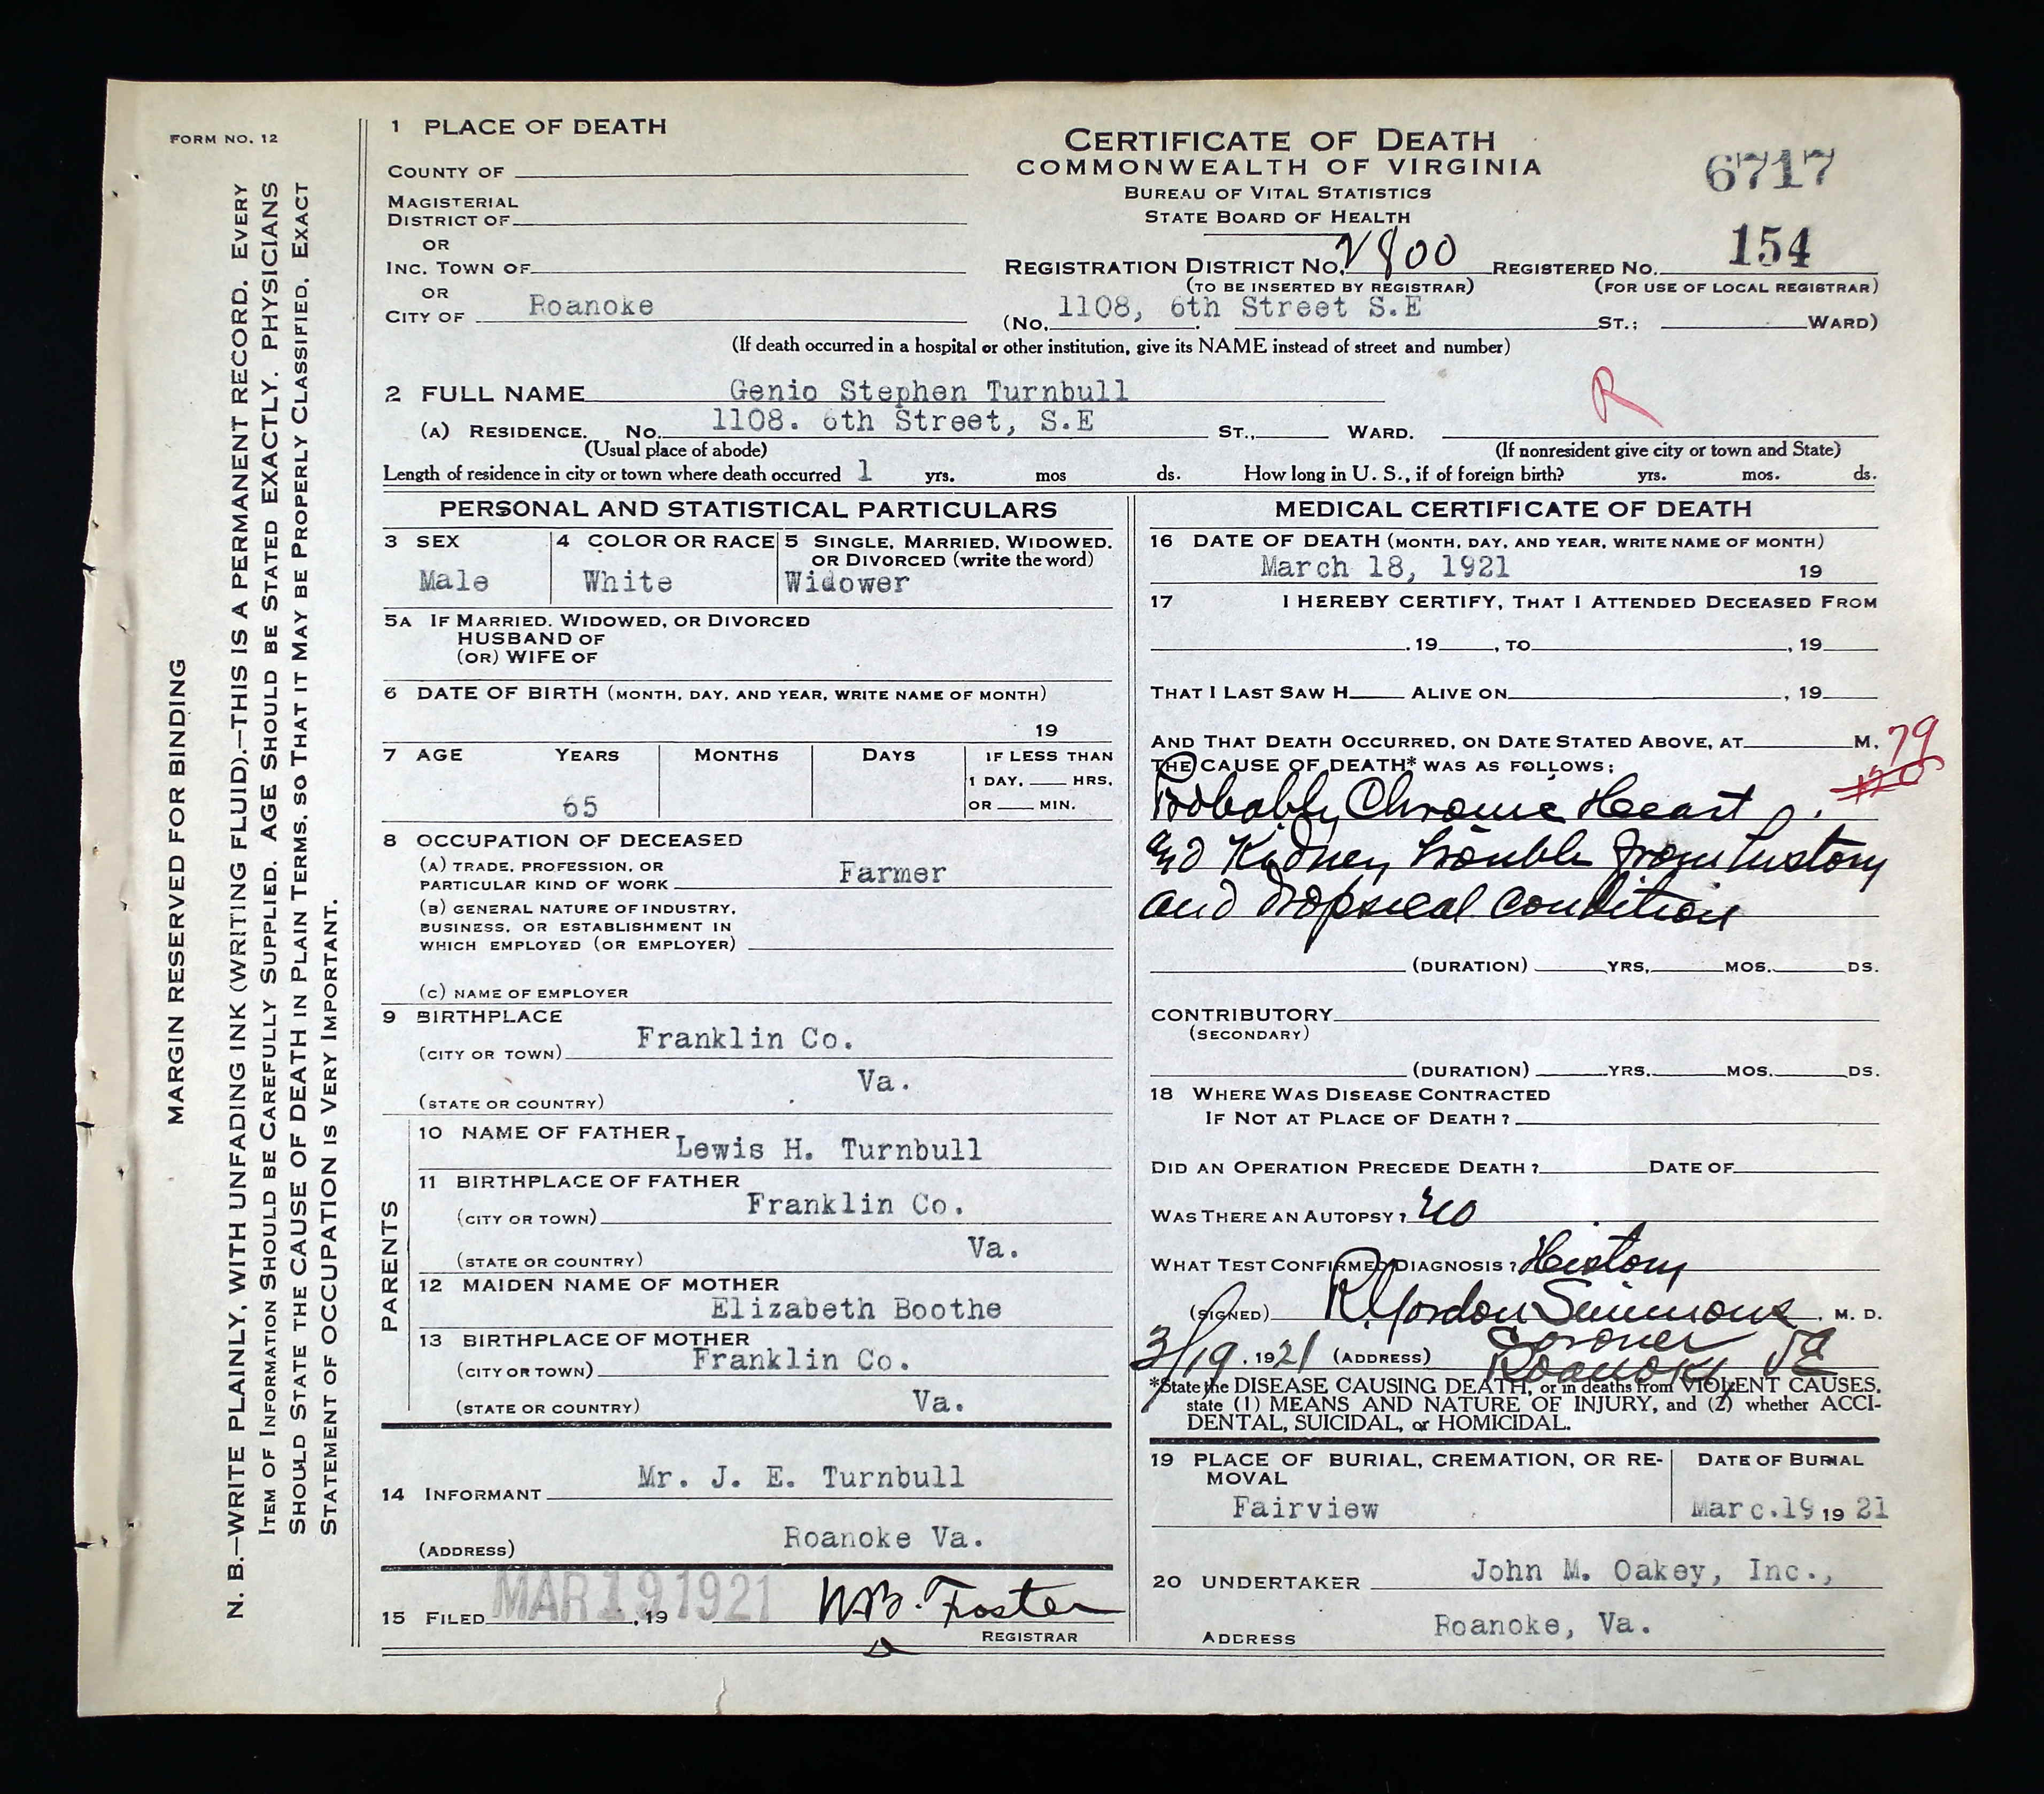 FORM NO. 12
MARGIN RESERVED FOR BINDING
N. B.—WRITE PLAINLY, WITH UNFADING INK (WRITING FLUID).—THIS IS A PERMANENT RECORD. EVERY
ITEM OF INFORMATION SHOULD BE CAREFULLY SUPPLIED. AGE SHOULD BE STATED EXACTLY. PHYSICIANS
SHOULD STATE THE CAUSE OF DEATH IN PLAIN TERMS, SO THAT IT MAY BE PROPERLY CLASSIFIED. EXACT
STATEMENT OF OCCUPATION IS VERY IMPORTANT.
1 PLACE OF DEATH
COUNTY OF
MAGISTERIAL
DISTRICT OF
OR
INC. TOWN OF
OR
CITY OF Roanoke
CERTIFICATE OF DEATH
COMMONWEALTH OF VIRGINIA
BUREAU OF VITAL STATISTICS
STATE BOARD OF HEALTH
6717
REGISTRATION DISTRICT NO. 2800 REGISTERED NO. 154
(TO BE INSERTED BY REGISTRAR) (FOR USE OF LOCAL REGISTRAR)
(No. 1108, 6th Street S.E ST.; WARD)
(If death occurred in a hospital or other institution, give its NAME instead of street and number)
2 FULL NAME Genio Stephen Turnbull
R
(A) RESIDENCE. No. 1108. 6th Street, S.E ST., WARD.
(Usual place of abode) (If nonresident give city or town and State)
Length of residence in city or town where death occurred 1 yrs. mos ds. How long in U. S., if of foreign birth? yrs. mos. ds.
PERSONAL AND STATISTICAL PARTICULARS
3 SEX 4 COLOR OR RACE 5 SINGLE, MARRIED, WIDOWED,
OR DIVORCED (write the word)
Male White Widower
5A IF MARRIED, WIDOWED, OR DIVORCED
HUSBAND OF
(OR) WIFE OF
6 DATE OF BIRTH (MONTH, DAY, AND YEAR, WRITE NAME OF MONTH)
19
7 AGE YEARS MONTHS DAYS IF LESS THAN
1 DAY, HRS,
65 OR MIN.
8 OCCUPATION OF DECEASED
(A) TRADE, PROFESSION, OR
PARTICULAR KIND OF WORK Farmer
(B) GENERAL NATURE OF INDUSTRY,
BUSINESS, OR ESTABLISHMENT IN
WHICH EMPLOYED (OR EMPLOYER)
(C) NAME OF EMPLOYER
9 BIRTHPLACE
(CITY OR TOWN) Franklin Co.
Va.
(STATE OR COUNTRY)
PARENTS
10 NAME OF FATHER Lewis H. Turnbull
11 BIRTHPLACE OF FATHER
(CITY OR TOWN) Franklin Co.
(STATE OR COUNTRY) Va.
12 MAIDEN NAME OF MOTHER
Elizabeth Boothe
13 BIRTHPLACE OF MOTHER
(CITY OR TOWN) Franklin Co.
(STATE OR COUNTRY) Va.
14 INFORMANT Mr. J. E. Turnbull
(ADDRESS) Roanoke Va.
15 FILED MAR 19 1921, 19 W.B. Foster
REGISTRAR
MEDICAL CERTIFICATE OF DEATH
16 DATE OF DEATH (MONTH, DAY, AND YEAR, WRITE NAME OF MONTH)
March 18, 1921 19
17 I HEREBY CERTIFY, THAT I ATTENDED DECEASED FROM
, 19 , TO , 19
THAT I LAST SAW H ALIVE ON , 19
AND THAT DEATH OCCURRED, ON DATE STATED ABOVE, AT M. 79
THE CAUSE OF DEATH* WAS AS FOLLOWS:
Probably Chronic Heart
and Kidney trouble from history
and dropsical condition
(DURATION) YRS. MOS. DS.
CONTRIBUTORY
(SECONDARY)
(DURATION) YRS. MOS. DS.
18 WHERE WAS DISEASE CONTRACTED
IF NOT AT PLACE OF DEATH?
DID AN OPERATION PRECEDE DEATH? DATE OF
WAS THERE AN AUTOPSY? no
WHAT TEST CONFIRMED DIAGNOSIS? History
(SIGNED) R. Gordon Simmons, M. D.
Coroner
3/19, 1921 (ADDRESS) Roanoke Va
*State the DISEASE CAUSING DEATH, or in deaths from VIOLENT CAUSES,
state (1) MEANS AND NATURE OF INJURY, and (2) whether ACCI-
DENTAL, SUICIDAL, or HOMICIDAL.
19 PLACE OF BURIAL, CREMATION, OR RE-
MOVAL
DATE OF BURIAL
Fairview Marc.19 19 21
20 UNDERTAKER John M. Oakey, Inc.,
ADDRESS Roanoke, Va.